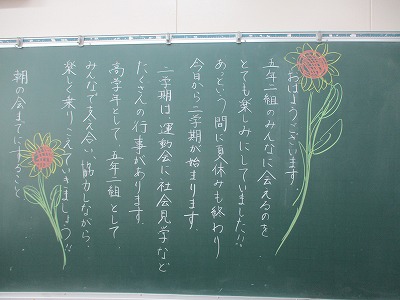 おはようございます。
五年二組のみんなに会えるのを
とても楽しみにしていました!!
あっという間に夏休みも終わり
今日から二学期が始まります。
二学期は運動会に社会見学など
たくさんの行事があります。
高学年として、五年二組として
みんなで支え合い協力しながら、
楽しく乗りこえていきましょう!!
朝の会までにすること